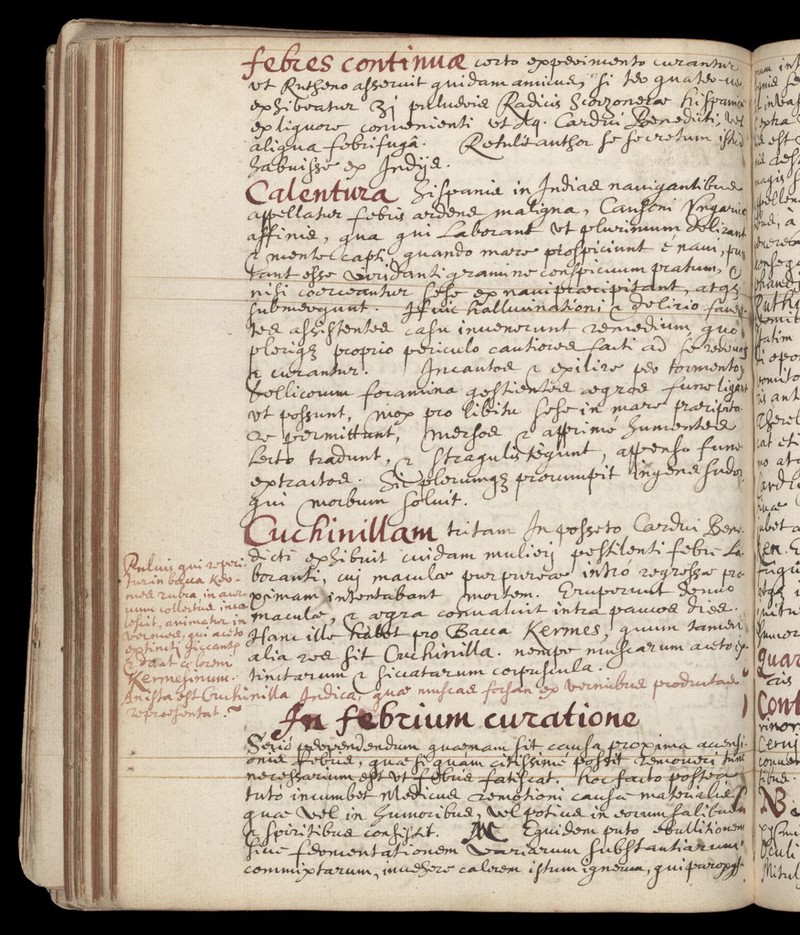 febres continuæ certo experimento curantur
vt Rutheno asseruit quidam amicus, si ter quaterue
exhibeatur ʒj pulueris Radicis Scorzoneræ hispanicæ
ex liquore conuenienti vt Aq. Cardui Benedicti, vel
aliqua febrifugâ. Retulit author se secretum istud
habuisse ex Indijs.
Calentura Hispanis in Indias nauigantibus
appellatur febris ardens maligna, Causoni Vngarico
affinis, qua qui Laborant vt plurimum delirant
& mente capti, quando mare prospiciunt e naui, pu
tant esse viridanti gramine conspicuum pratum, &
nisi coerceantur sese ex naui præcipitant, atq3
submergunt. Huic hallucinationi & delirio
tes assistentes casu inuenerunt remedium, quo
pleriq3 proprio periculo cautiores facti ad se redeunt
& curantur. Incautos & exilire per tormentorum
bellicorum foramina gestientes ægros fune ligant
vt possunt, mox pro libitu sese in mare præcipita
re permittunt, mersos & apprime humentes
Lecto tradunt, & stragulis tegunt, appenso fune
extractos. Sic plerumq3 prorumpit ingens sudor
qui morbum soluit.
Cuchinillam tritam in posseto Cardui Bene
dicti exhibuit cuidam mulieri pestilenti febre La
boranti, cuj maculæ purpureæ intrò regressæ pro
ximam intentabant mortem. Eruperunt denuo
maculæ, & ægra conualuit intra paucos dies.
Hanc ille habet pro Bacca Kermes, quum tamen
alia res sit Cuchinilla. nempe muscarum aceto ex
tinctarum & siccatarum corpuscula.
Puluis qui reperi
tur in bacca Ker-
mes rubra, in
num collectus
lescit, animatur in
vermes, qui aceto
extincti siccantur
& dant colorem
Kermesinum.
An ista est Cuchinilla Indica, quæ muscas forsan ex vermibus productas
repræsentat.
In febrium curatione
Seriò perpendendum quænam sit causa proxima accensi-
onis febris, quæ si quam citissime possit remoueri tum
necessarium est vt febris fatiscat. hoc facto postea
tutò incumbet Medicus remotioni causæ materialis
quæ vel in humoribus, vel potius in eorum salibus
& spiritibus consistit. Equidem puto ebullitionem
siue fermentationem variarum substantiarum
commixtarum, inuehere calorem istum igneum, qui